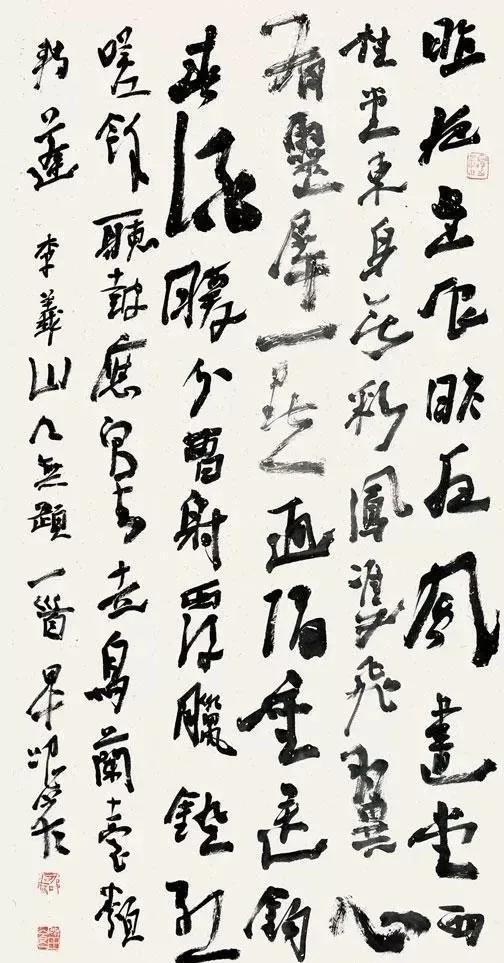 昨夜星辰昨夜風畫堂西
桂堂東身無彩鳳雙飛翼心
有靈犀一點通隔座送鉤
春酒暖分曹射覆蠟鐙紅
嗟餘聽鼓應官去走馬蘭臺類
轉蓬 李義山無題一首